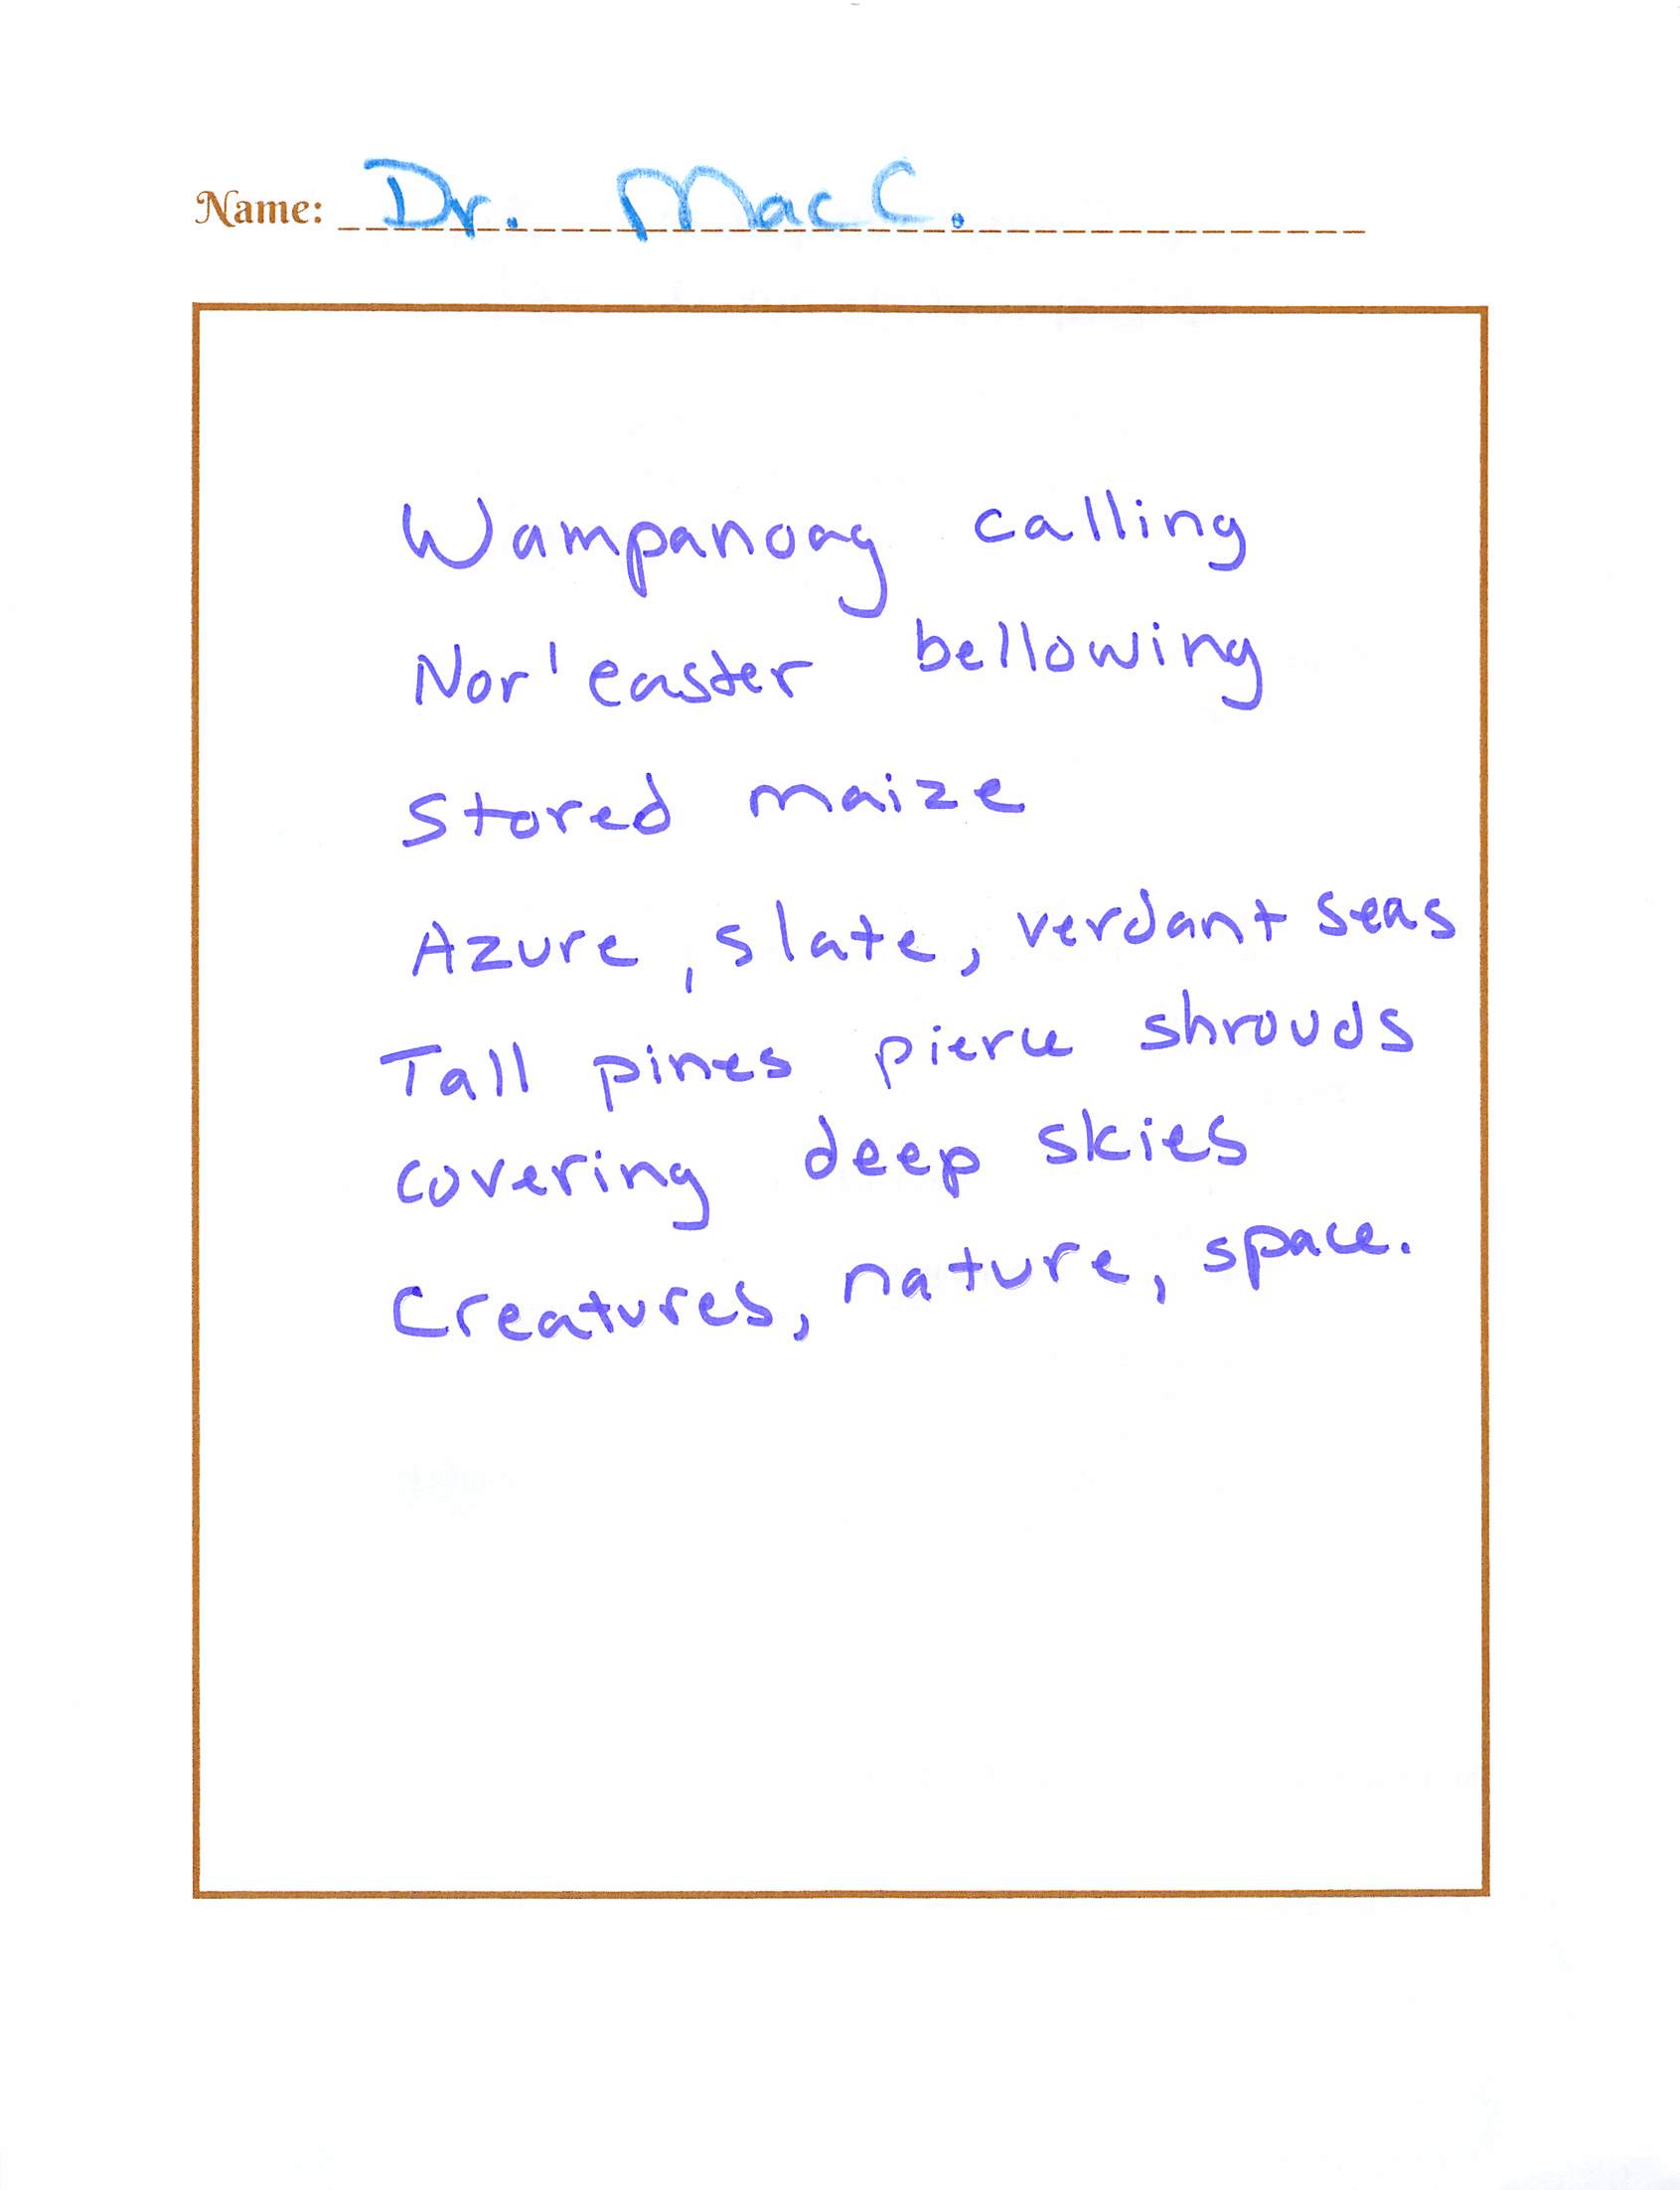 Name: Dr. Mac C.
Wampanoag calling
Nor'easter bellowing
Stored maize
Azure, slate, verdant seas
Tall pines pierce shrouds
covering deep skies
Creatures, nature, space.